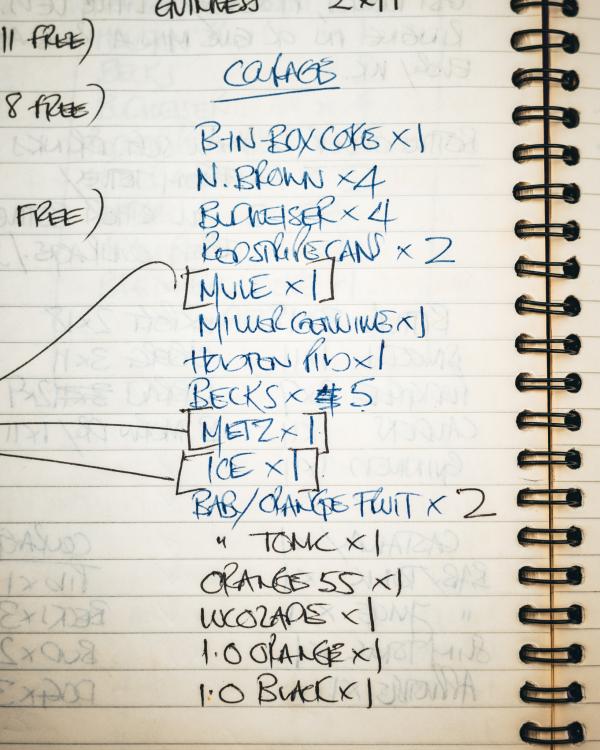 GUINNESS 2x11
11 FREE)
COURAGE
8 FREE)
B-IN-BOX COKE x 1
N. BROWN x 4
FREE)
BUDWEISER x 4
RED STRIPE CANS x 2
MULE x 1
MILLER GENUINE x 1
HOLSTEN PILS x 1
BECKS x 5
METZ x 1
ICE x 1
BAB/ORANGE FRUIT x 2
" TONIC x 1
ORANGE 55 x 1
LUCOZADE x 1
1.0 ORANGE x 1
1.0 BLACK x 1